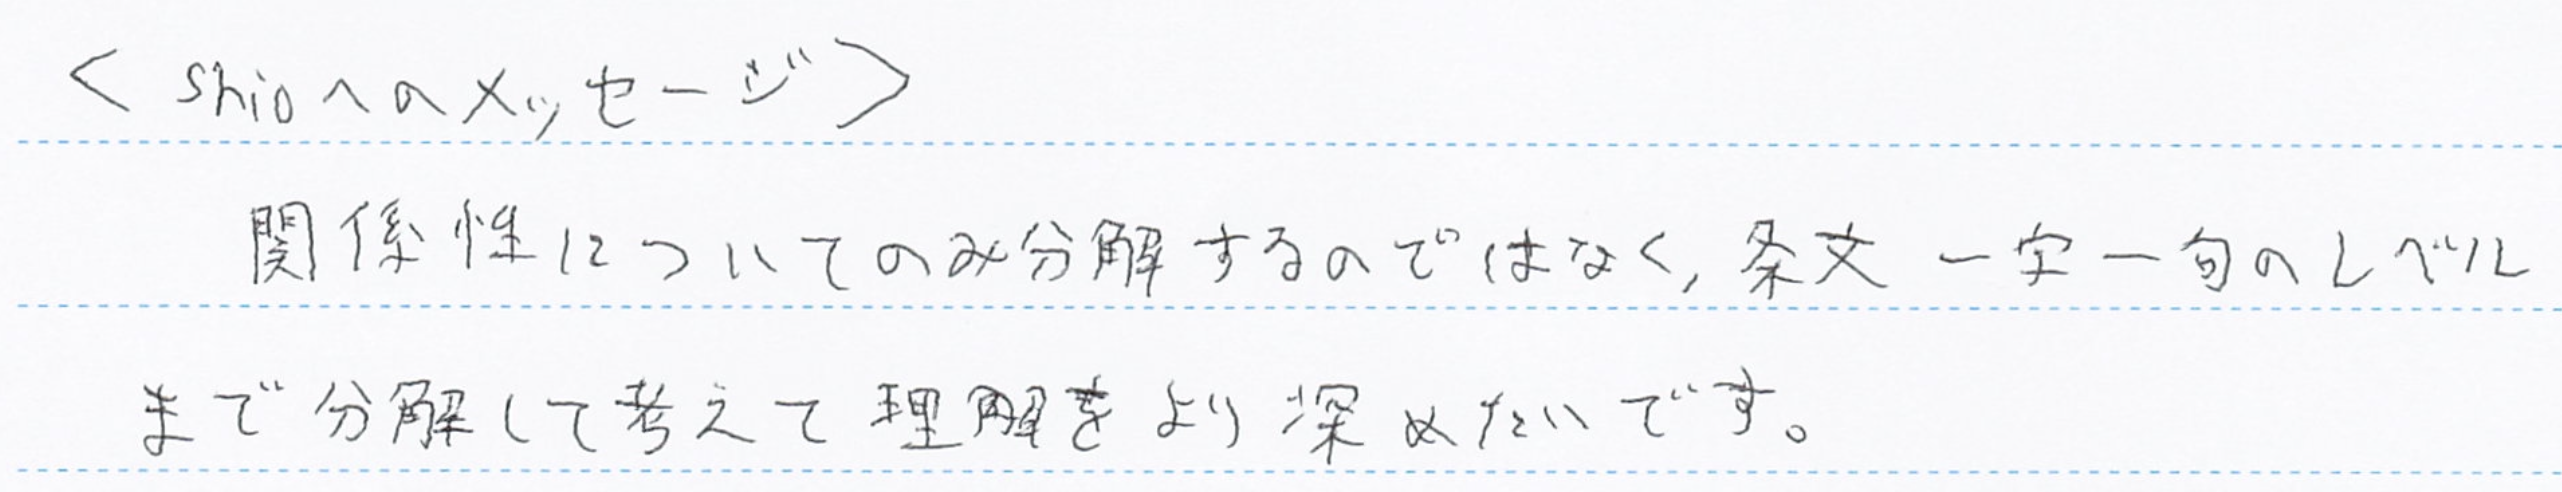 <shioへのメッセージ>
関係性についてのみ分解するのではなく,条文一字一句のレベル
まで分解して考えて理解をより深めたいです。